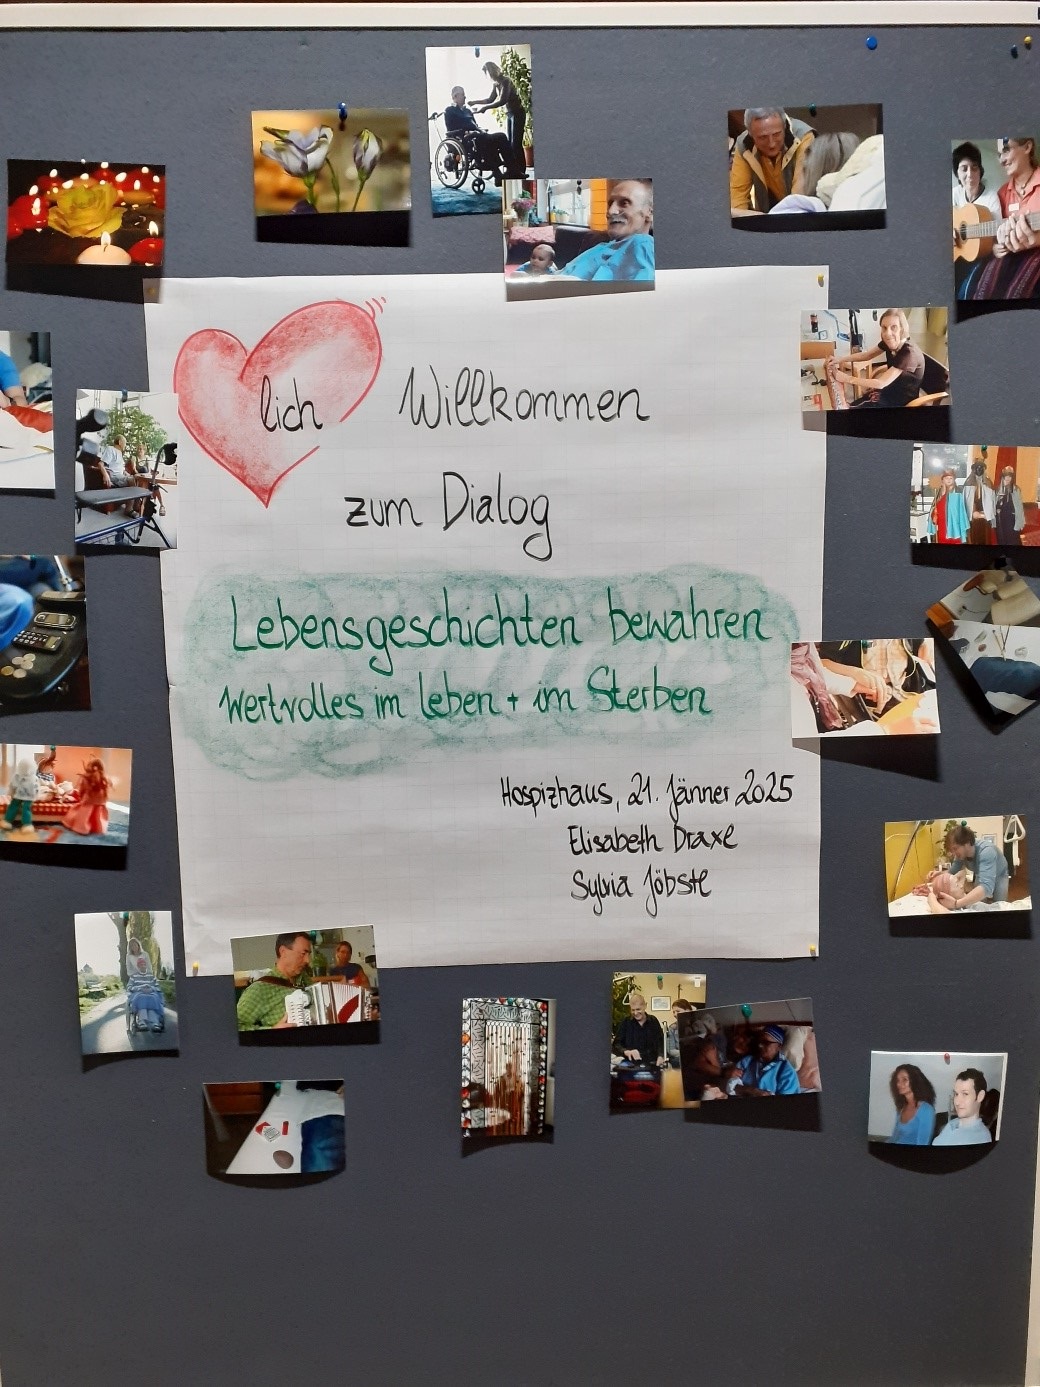 lich Willkommen
zum Dialog
Lebensgeschichten bewahren
Wertvolles im Leben + im Sterben
Hospizhaus, 21. Jänner 2025
Elisabeth Draxl
Sylvia Jöbstl